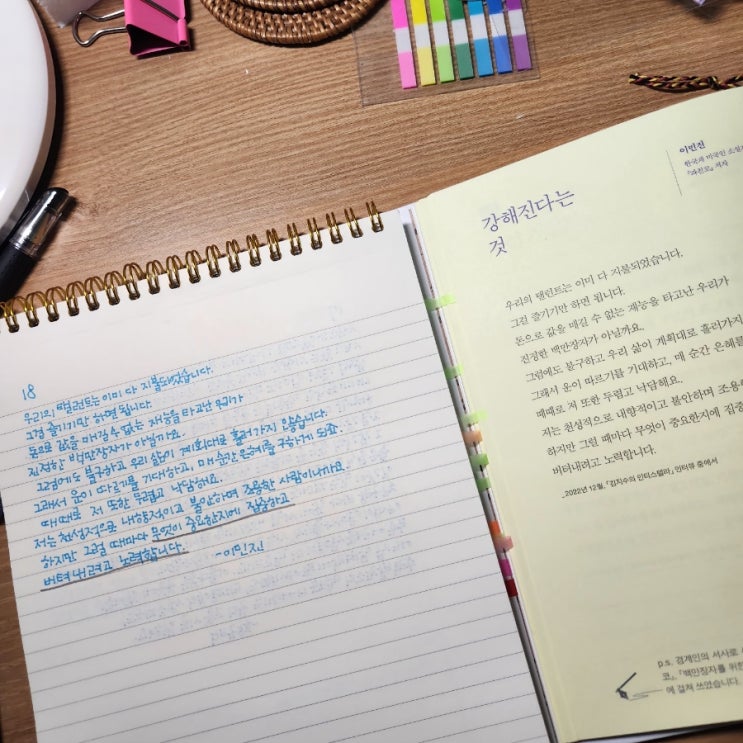 18
우리의 탤런트는 이미 다 지불되었습니다.
그걸 즐기기만 하면 됩니다.
돈으로 값을 매길 수 없는 재능을 타고난 우리가
진정한 백만장자가 아닐까요.
그럼에도 불구하고 우리 삶이 계획대로 흘러가지 않습니다.
그래서 운이 따르기를 기대하고, 매 순간 은혜를 구하게 되죠.
때때로 저 또한 두렵고 낙담해요.
저는 천성적으로 내향적이고 불안하며 조용한 사람이니까요.
하지만 그럴 때마다 무엇이 중요한지에 집중하고
버텨내려고 노력합니다. -이민진
이민진
한국계 미국인 소설
『파친코』 저자
강해진다는
것
우리의 탤런트는 이미 다 지불되었습니다.
그걸 즐기기만 하면 됩니다.
돈으로 값을 매길 수 없는 재능을 타고난 우리가
진정한 백만장자가 아닐까요.
그럼에도 불구하고 우리 삶이 계획대로 흘러가지
그래서 운이 따르기를 기대하고, 매 순간 은혜를
때때로 저 또한 두렵고 낙담해요.
저는 천성적으로 내향적이고 불안하며 조용
하지만 그럴 때마다 무엇이 중요한지에 집중
버텨내려고 노력합니다.
_2022년 12월, 「김지수의 인터스텔라」 인터뷰 중에서
p.s. 경계인의 서사로
코』, 『백만장자를 위한
에 걸쳐 쓰았습니다.